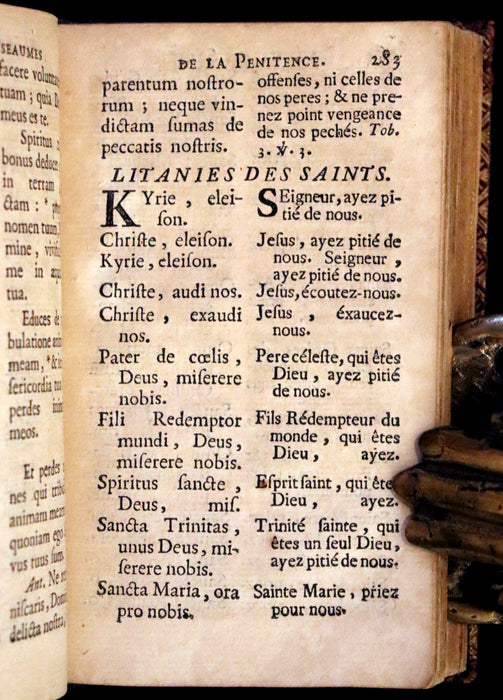 SEAUMES
facere volun
tuam ; quia D
meus es te.
Spiritus
bonus deduc
in terram
ctam : *
nomen tuum
mine , vivi
me in
tua.
Educes de
bulatione ani
meam , * &
sericordia tua
perdes ini
meos.
Et perdes
nes qui trib
animam mea
quoniam ego
vus tuus sum.
Ant. Ne
niſcaris, Dom
delicta noſtra,
DE LA PENITENCE. 283
parentum noſtro-
rum ; neque vin-
dictam ſumas de
peccatis noſtris.
offenſes, ni celles de
nos peres ; & ne pre-
nez point vengeance
de nos pechés. Tob.
3. ℣. 3.
LITANIES DES SAINTS.
KYrie , elei-
ſon.
Chriſte, eleiſon.
Kyrie, eleiſon.
Chriſte, audi nos.
Chriſte , exaudi
nos.
Pater de cœlis ,
Deus , miſerere
nobis.
Fili Redemptor
mundi , Deus ,
miſerere nobis.
Spiritus ſancte ,
Deus, miſ.
Sancta Trinitas ,
unus Deus, mi-
ſerere nobis.
Sancta Maria, ora
pro nobis.
SEigneur, ayez pi-
tié de nous.
Jeſus, ayez pitié de
nous. Seigneur ,
ayez pitié de nous.
Jeſus, écoutez-nous.
Jeſus , éxaucez-
nous.
Pere céleſte, qui êtes
Dieu , ayez pitié
de nous.
Fils Rédempteur du
monde , qui êtes
Dieu , ayez.
Eſprit ſaint, qui ête
Dieu , ayez.
Trinité ſainte , qui
êtes un ſeul Dieu,
ayez pitié de nous.
Sainte Marie, priez
pour nous.